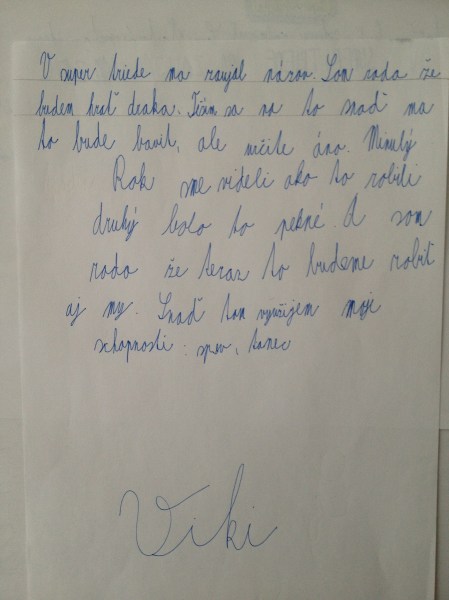 V super triede ma zaujal názov. Som rada že
budem hrať deaka. Teším sa na to snaď ma
to bude baviť, ale určite áno. Minulý
Rok sme videli ako to robili
druhý bolo to pekné. A som
rada že teraz to budeme robiť
aj my. Snaď tam využijem moje
schopnosti: spev, tanec
Viki